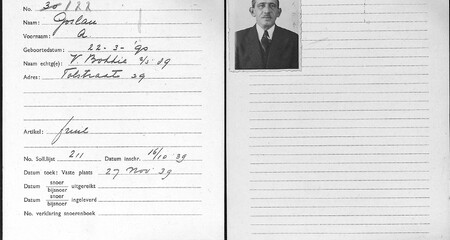 No. 30122
Naam: Goslau
Voornaam: A
Geboortedatum: 22-3-'90
Naam echtg(e): V. Bokkie 2/5 09
Adres: Tolstraat 39
Artikel: fruit
No. Soll.lijst 211 Datum inschr. 16/10 39
Datum toek: Vaste plaats 27 Nov 39
Datum snoer bijsnoer uitgereikt
Datum snoer bijsnoer ingeleverd
No. verklaring snoerenboek